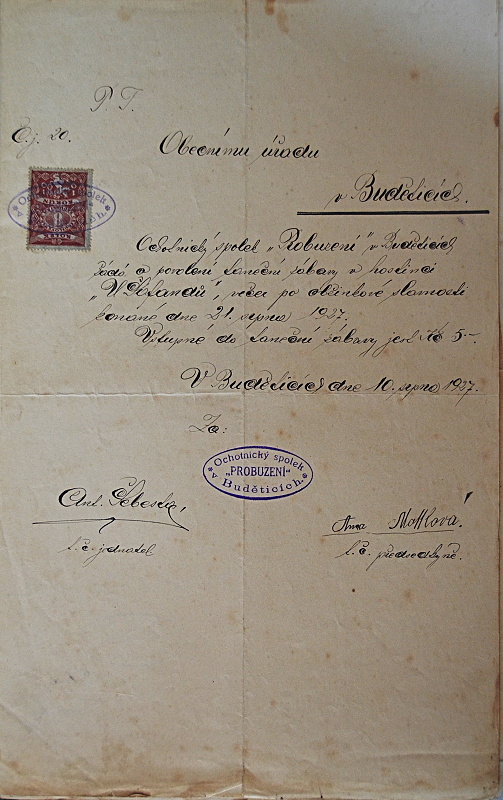 P. T.
Č. j. 20.
Obecnímu úřadu
v Budětících.
Ochotnický spolek „Probuzení“ v Budětících
žádá o povolení taneční zábavy v hostinci
„U Šafandů“, večer po obžinkové slavnosti
konané dne 21. srpna 1937.
Vstupné do taneční zábavy jest Kč 5-.
V Budětících dne 10. srpna 1937.
Za:
Ochotnický spolek
„PROBUZENÍ“
v Budětících.
Ant. Šebesta,
t. č. jednatel
Anna
t. č. předsedkyně.